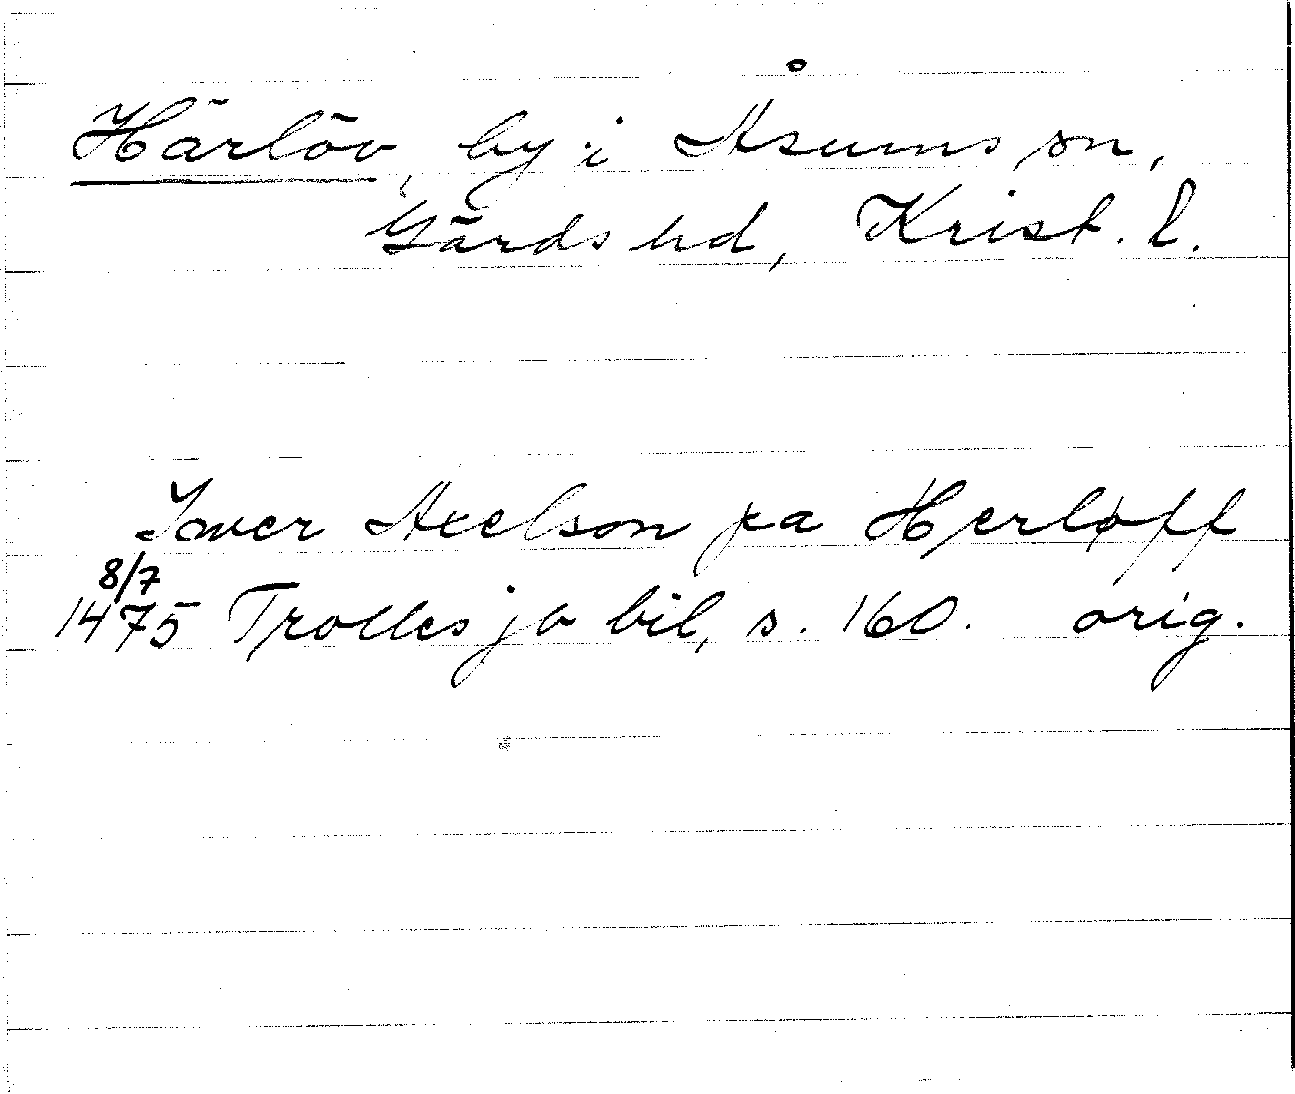 Härlöv, by i Åsums sn,
Gärds hd, Krist. l.
Iwer Axelson pa Herløff
8/7
1475 Trolles jb bil, s. 160. orig.